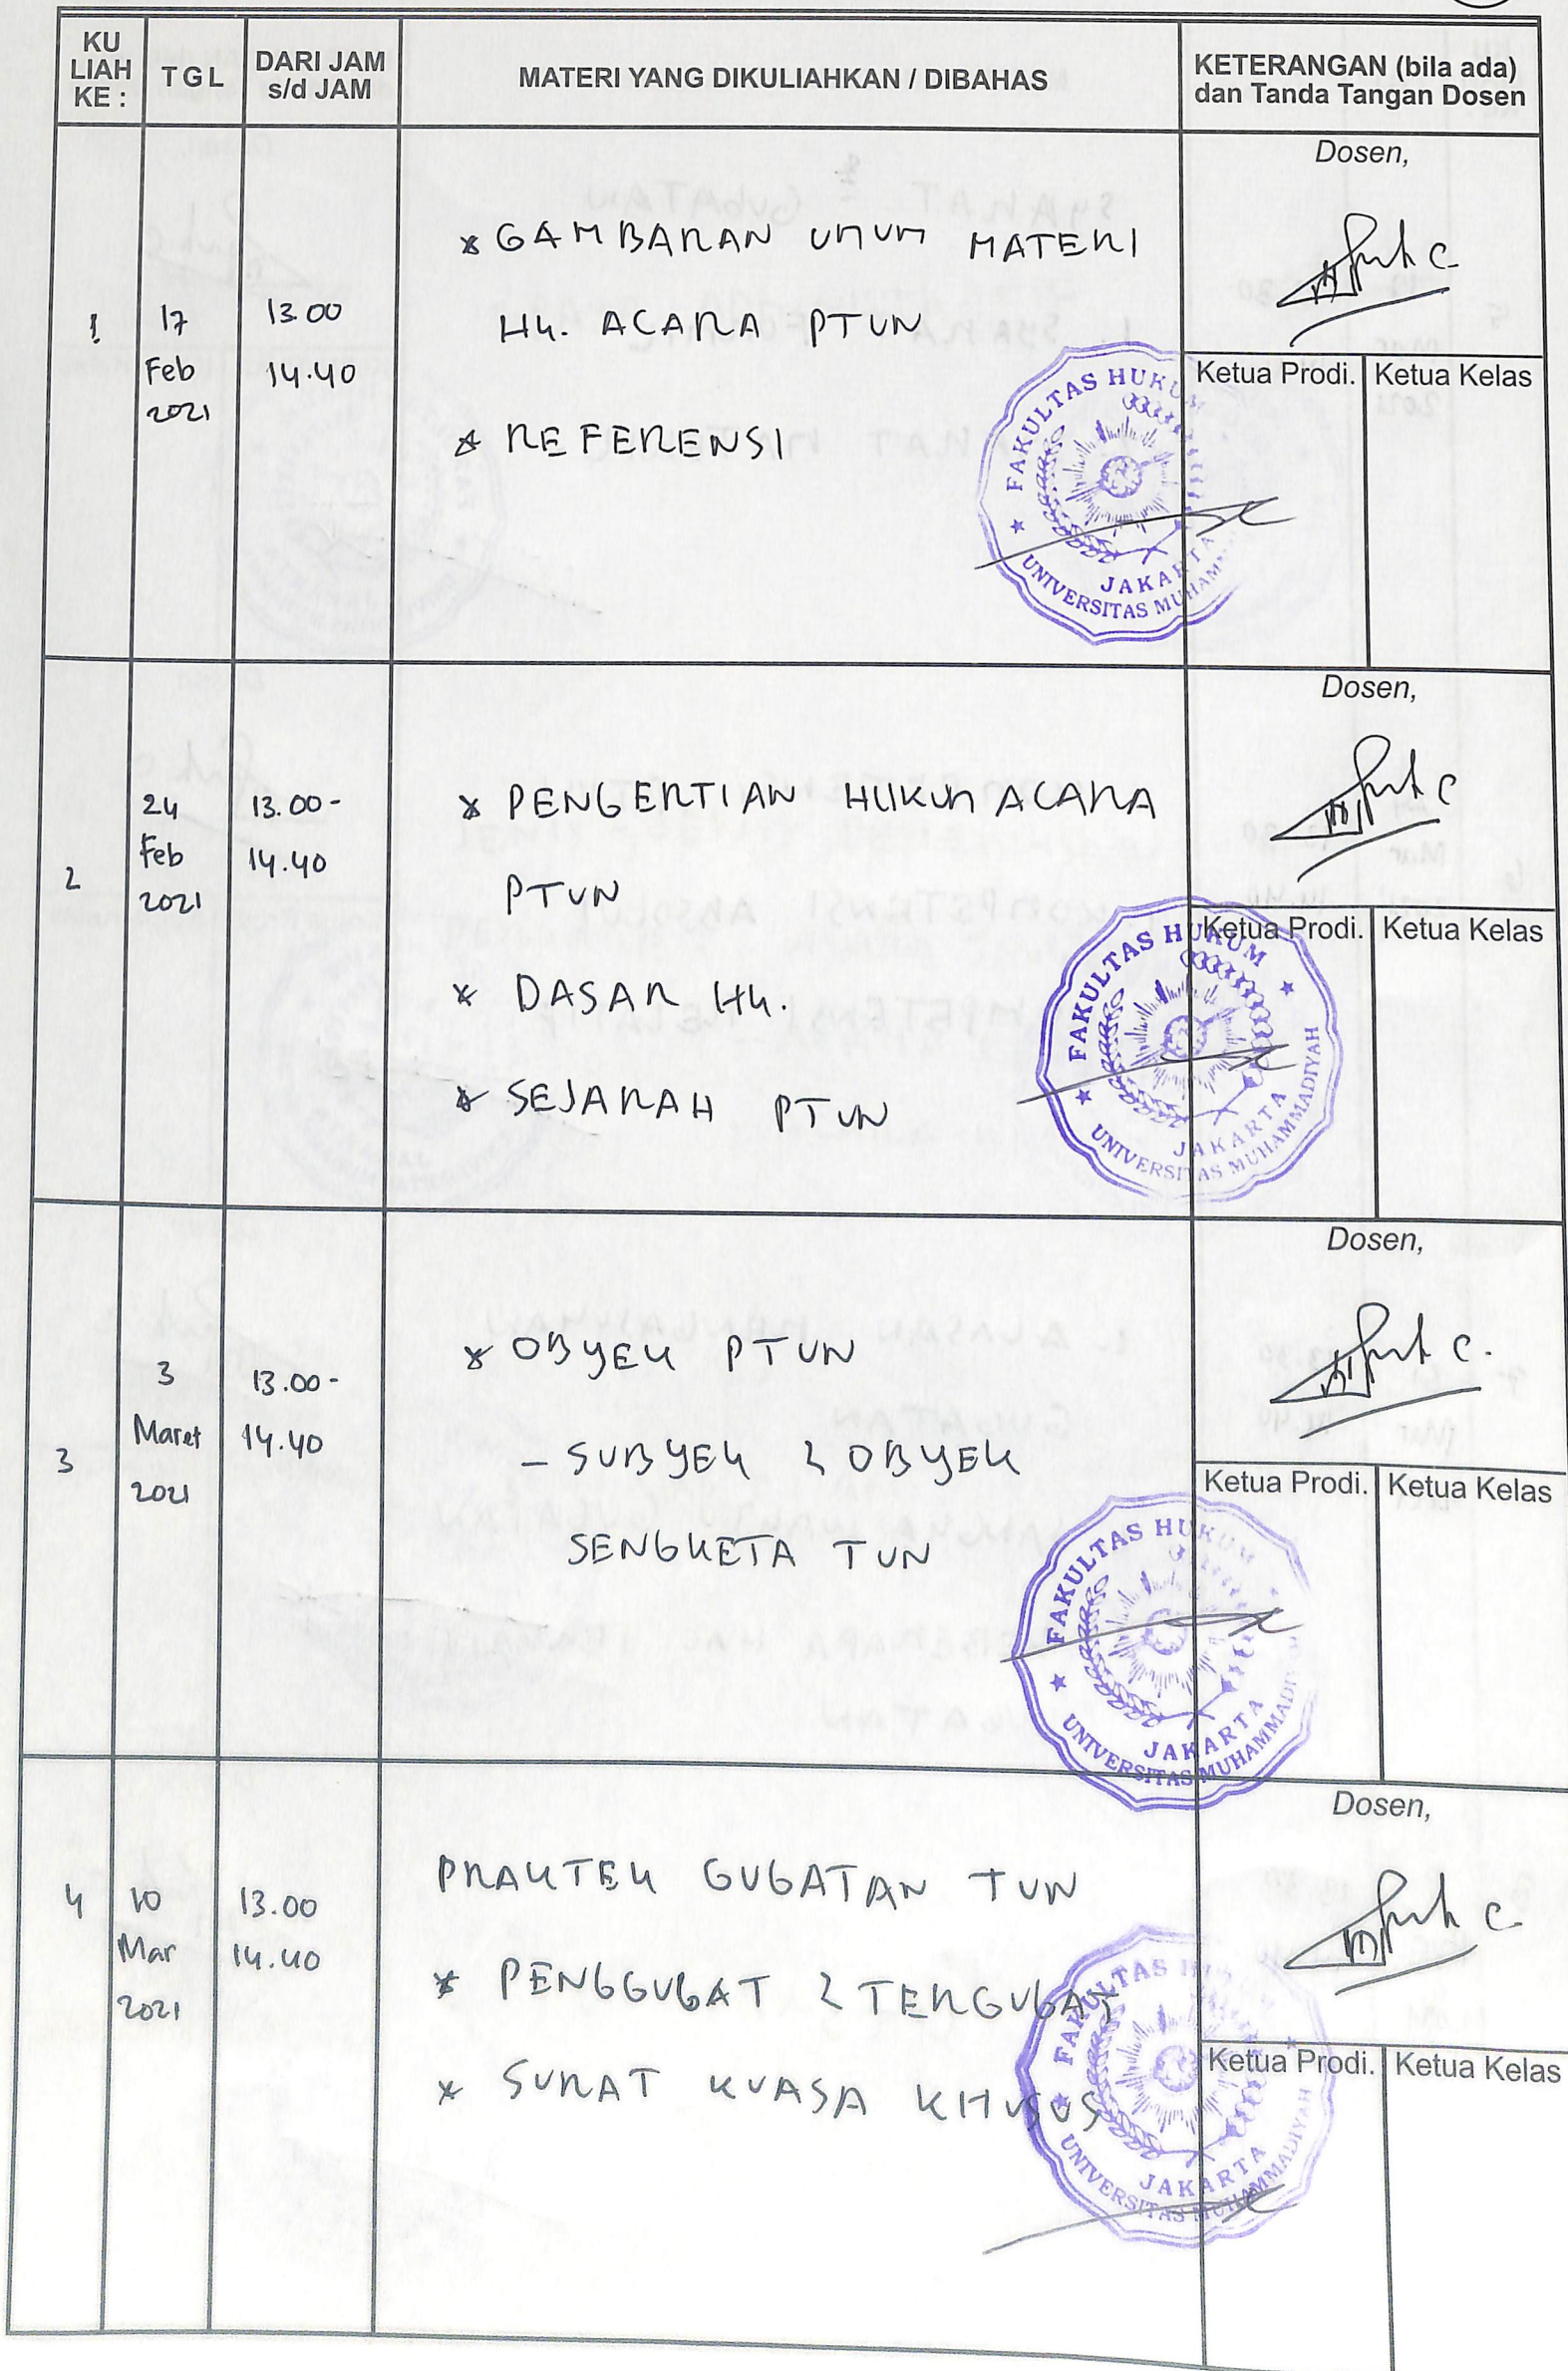 KU LIAH KE :
TGL
DARI JAM s/d JAM
MATERI YANG DIKULIAHKAN / DIBAHAS
KETERANGAN (bila ada) dan Tanda Tangan Dosen
1
17
Feb
2021
13.00
14.40
* GAMBARAN UMUM MATERI
Hk. ACARA PTUN
* REFERENSI
Dosen,
Ketua Prodi.
Ketua Kelas
FAKULTAS HUKUM
JAKARTA
UNIVERSITAS MUHAMM
2
24
Feb
2021
13.00-
14.40
* PENGERTIAN HUKUM ACARA
PTUN
* DASAR Hk.
* SEJARAH PTUN
Dosen,
Ketua Prodi.
Ketua Kelas
FAKULTAS HUKUM
JAKARTA
UNIVERSITAS MUHAMMADIYAH
3
3
Maret
2021
13.00-
14.40
* OBYEK PTUN
- SUBYEK & OBYEK
SENGKETA TUN
Dosen,
Ketua Prodi.
Ketua Kelas
FAKULTAS HUKUM
JAKARTA
UNIVERSITAS MUHAMMADIY
4
10
Mar
2021
13.00
14.40
PRAKTEK GUGATAN TUN
* PENGGUGAT & TERGUGAT
* SURAT KUASA KHUSUS
Dosen,
Ketua Prodi.
Ketua Kelas
FAKULTAS HU
JAKARTA
UNIVERSITAS MUHAMMADIYAH